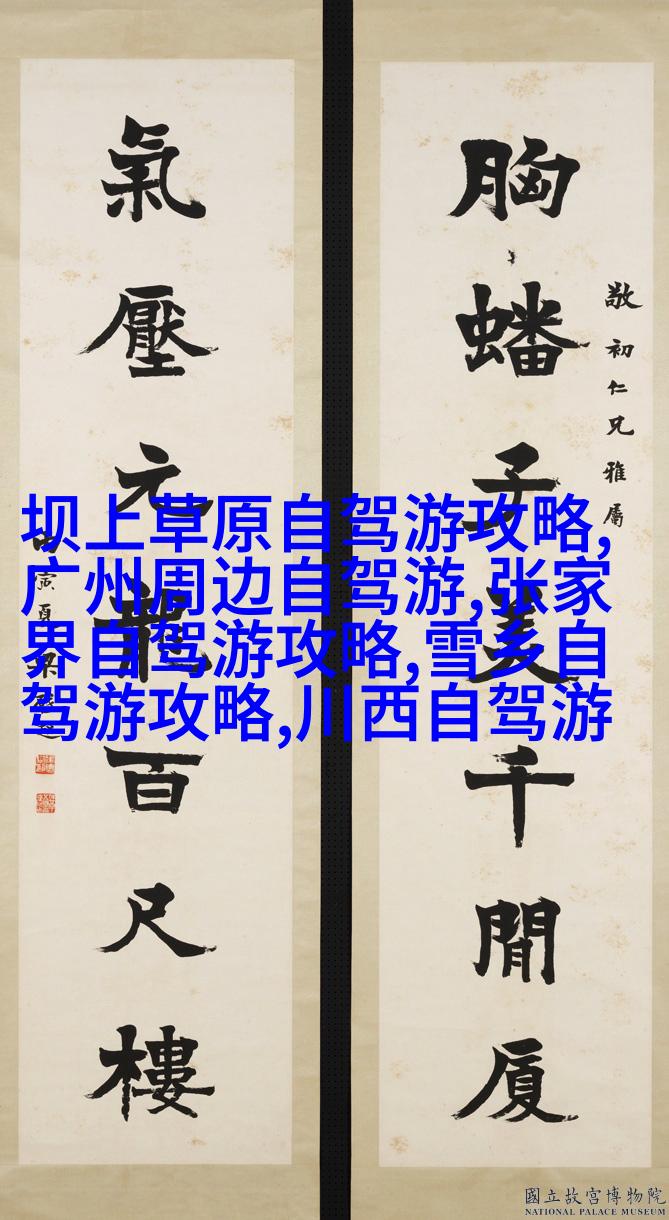 胸蟠子美千閒厦
敬初仁兄雅屬
氣壓元龍百尺樓
寅夏梁
坝上草原自驾游攻略,
广州周边自驾游,张家
界自驾游攻略,雪乡自
驾游攻略,川西自驾游
國立故宮博物院
NATIONAL PALACE MUSEUM